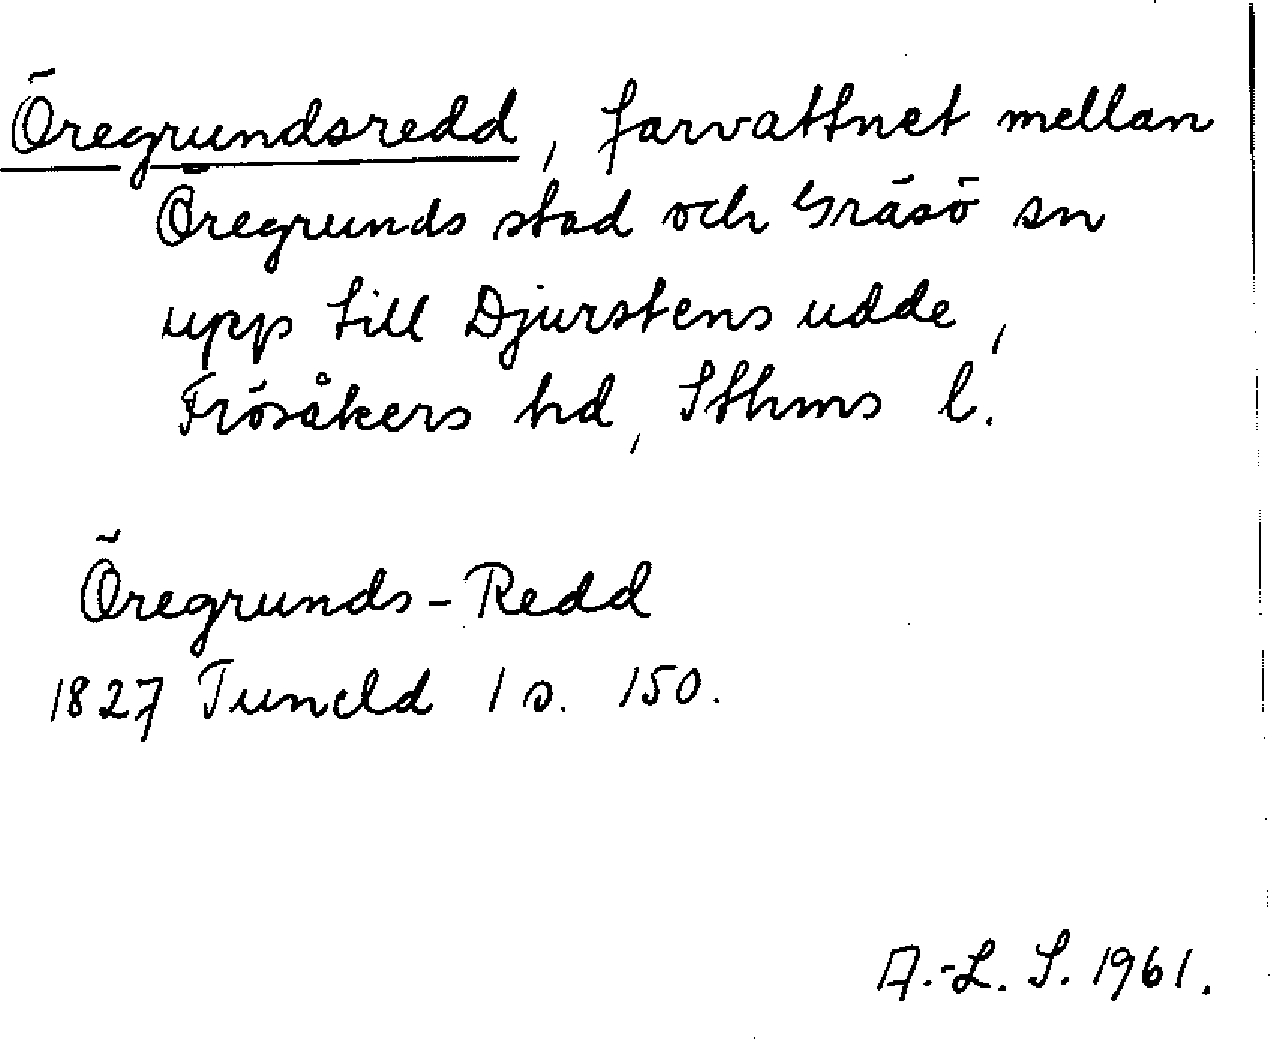 Öregrundsredd, farvattnet mellan
Öregrunds stad och Gräsö sn
upp till Djurstens udde,
Frösåkers hd, Sthms l.
Öregrunds-Redd
1827 Tuneld 1 s. 150.
A.-L. S. 1961.